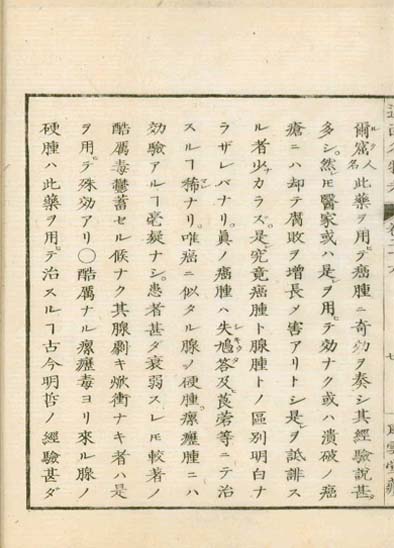 爾窊人名此藥ヲ用テ癌腫ニ奇効ヲ奏シ其經驗說甚
多シ然レ𪜈醫家或ハ是ヲ用テ効ナク或ハ潰破ノ癌
瘡ニハ却テ腐敗ヲ增長メ害アリトシ是ヲ詆誹ス
ル者少カラズ是究竟癌腫ト腺腫トノ區別明白ナ
ラザレバナリ眞ノ癌腫ハ失鳩答及莨菪等ニテ治
スルヿ稀ナリ唯癌ニ似タル腺ノ硬腫瘰癧腫ニハ
効驗アルヿ毫疑ナシ患者甚ダ衰弱スレ𪜈較著ノ
酷厲毒鬱蓄セル候ナク其腺劇キ焮衝ナキ者ハ是
ヲ用テ殊効アリ〇酷厲ナル瘰癧毒ヨリ來ル腺ノ
硬腫ハ此藥ヲ用テ治スルヿ古今明哲ノ經驗甚ダ